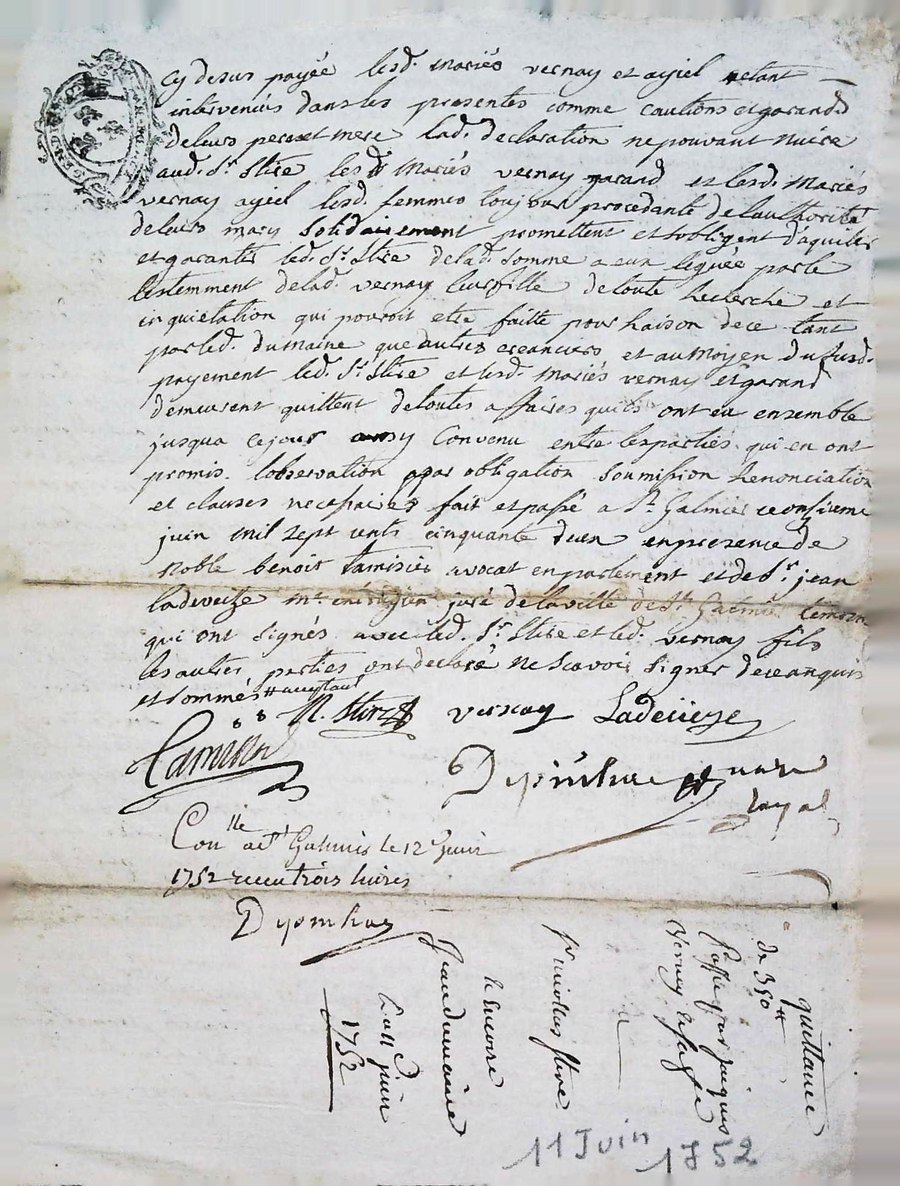 Cy desus payée lesd. Mariés vernay et ayiel etant
intervenus dans les presentes comme cautions et garand
de leurs pere et mere lad. declaration ne pouvant nuire
aud. Sr. Stire lesd. Mariés vernay garand et lesd. Mariés
vernay ayiel lesd. femmes toujour procedante de lauthorité
de leurs mary solidairement promettent et sobligent d'aquiter
et garantir led. Sr. Stire de lad. somme a eux leguée par le
testemment de lad. vernay leur fille de toute Recherche et
inquietation qui pouroit etre faitte pour Raison de ce tant
par led. dumaine que autres creanciers et au moyen du susd.
payement led. Sr. Stire et lesd. Mariés vernay et garand
demeurent quittent de toutes affaires quils ont eu ensemble
jusqua ce jour ainsy Convenu entre les parties qui en ont
promis l'observation par obligation soumission Renonciation
et clauses necessaires fait et passé a St. Galmier ce onsieme
juin mil sept cents cinquante deux en presence de
Noble benoit tamisier avocat en parlement et de Sr. jean
ladeveize Me. juré de la ville de St. Galmier temoin
qui ont signés avec led. Sr. Stire et led. vernay fils
les autres parties ont declaré ne scavoir signer de ce enquis
et sommés
N. Stire vernay Ladeveze
Tamisier
Depinhac
royal
Conlle a St Galmier le 12e Juin
1752 receu trois livres
Depinhac
quittance
de 350 lt
Passée par jacques
Vernay
Sr nicolas Stire
le encore
Jean dumaine
du 11 juin
1752
11 Juin 1752